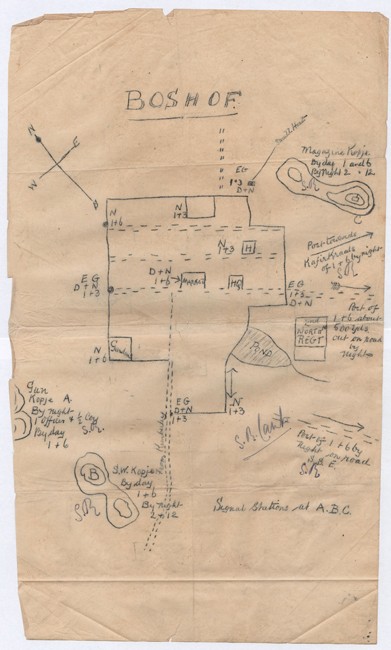 BOSHOF
N
W
E
Small House
E G
1+3
D+N
Magazine Kopje
By day 1 and 6
By Night 2 + 12
S.R.
C
N
1+6
N
1+3
N
1+3
H
D+N
1+6
MARKET
HQ
E G
D+N
1+3
E G
1+3
D+N
Post towards
Kafir Kraals
of 1+6 by night
Post of
1+6 about
600 yds
out on road
by Night
NORTH
REGT
N
1+6
POND
E G
D+N
1+3
N
1+3
S.R. Camp
Post of 1+6 by
night on road
S.R.
Gun
Kopje A.
By night
1 Officer + ½ Coy
By day
1+6
S.R.
B
S.W. Kopje
By day
1+6
By night
2+12
S.R.
From Kimberley
Signal Stations at A.B.C.